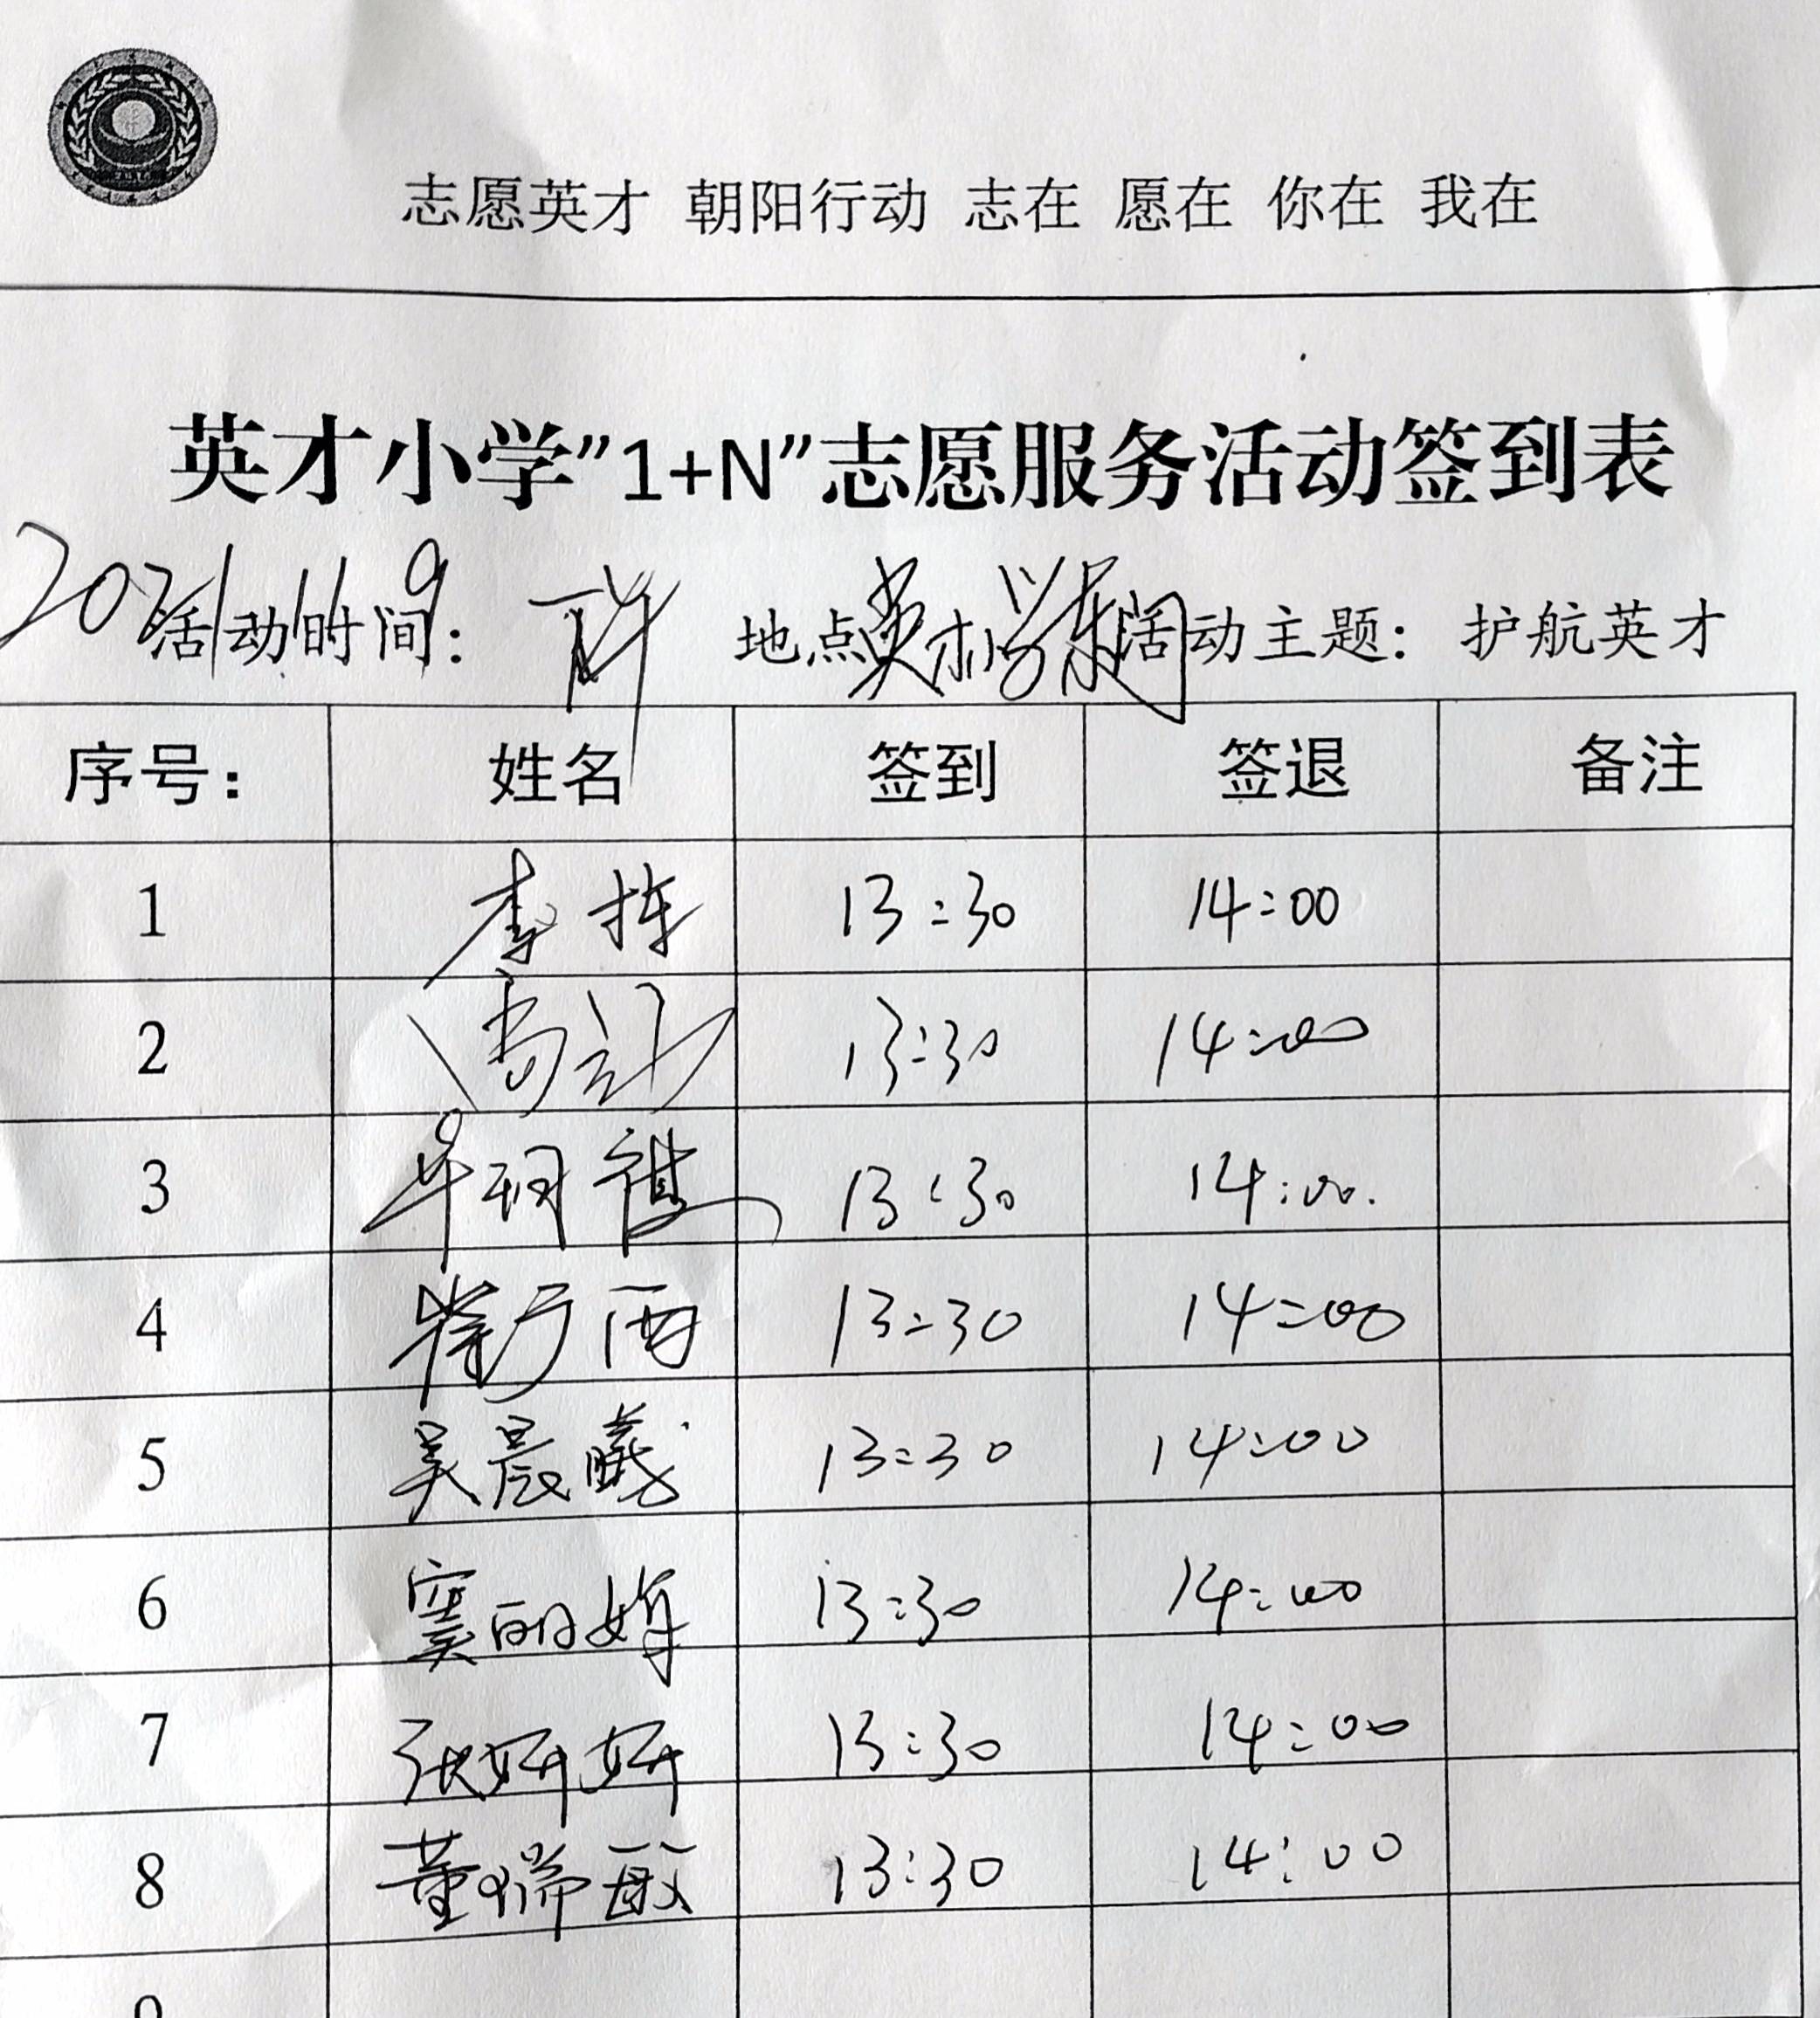 志愿英才 朝阳行动 志在 愿在 你在 我在
英才小学"1+N"志愿服务活动签到表
2021/11/9 活动时间: 下午 地点 英才小学东门 活动主题: 护航英才
序号: 姓名 签到 签退 备注
1 李栋 13:30 14:00
2 13:30 14:00
3 牟珂 13:30 14:00.
4 雨 13:30 14:00
5 吴晨曦 13:30 14:00
6 窦丽娟 13:30 14:00
7 张妍妍 13:30 14:00
8 董瑞敏 13:30 14:00
9